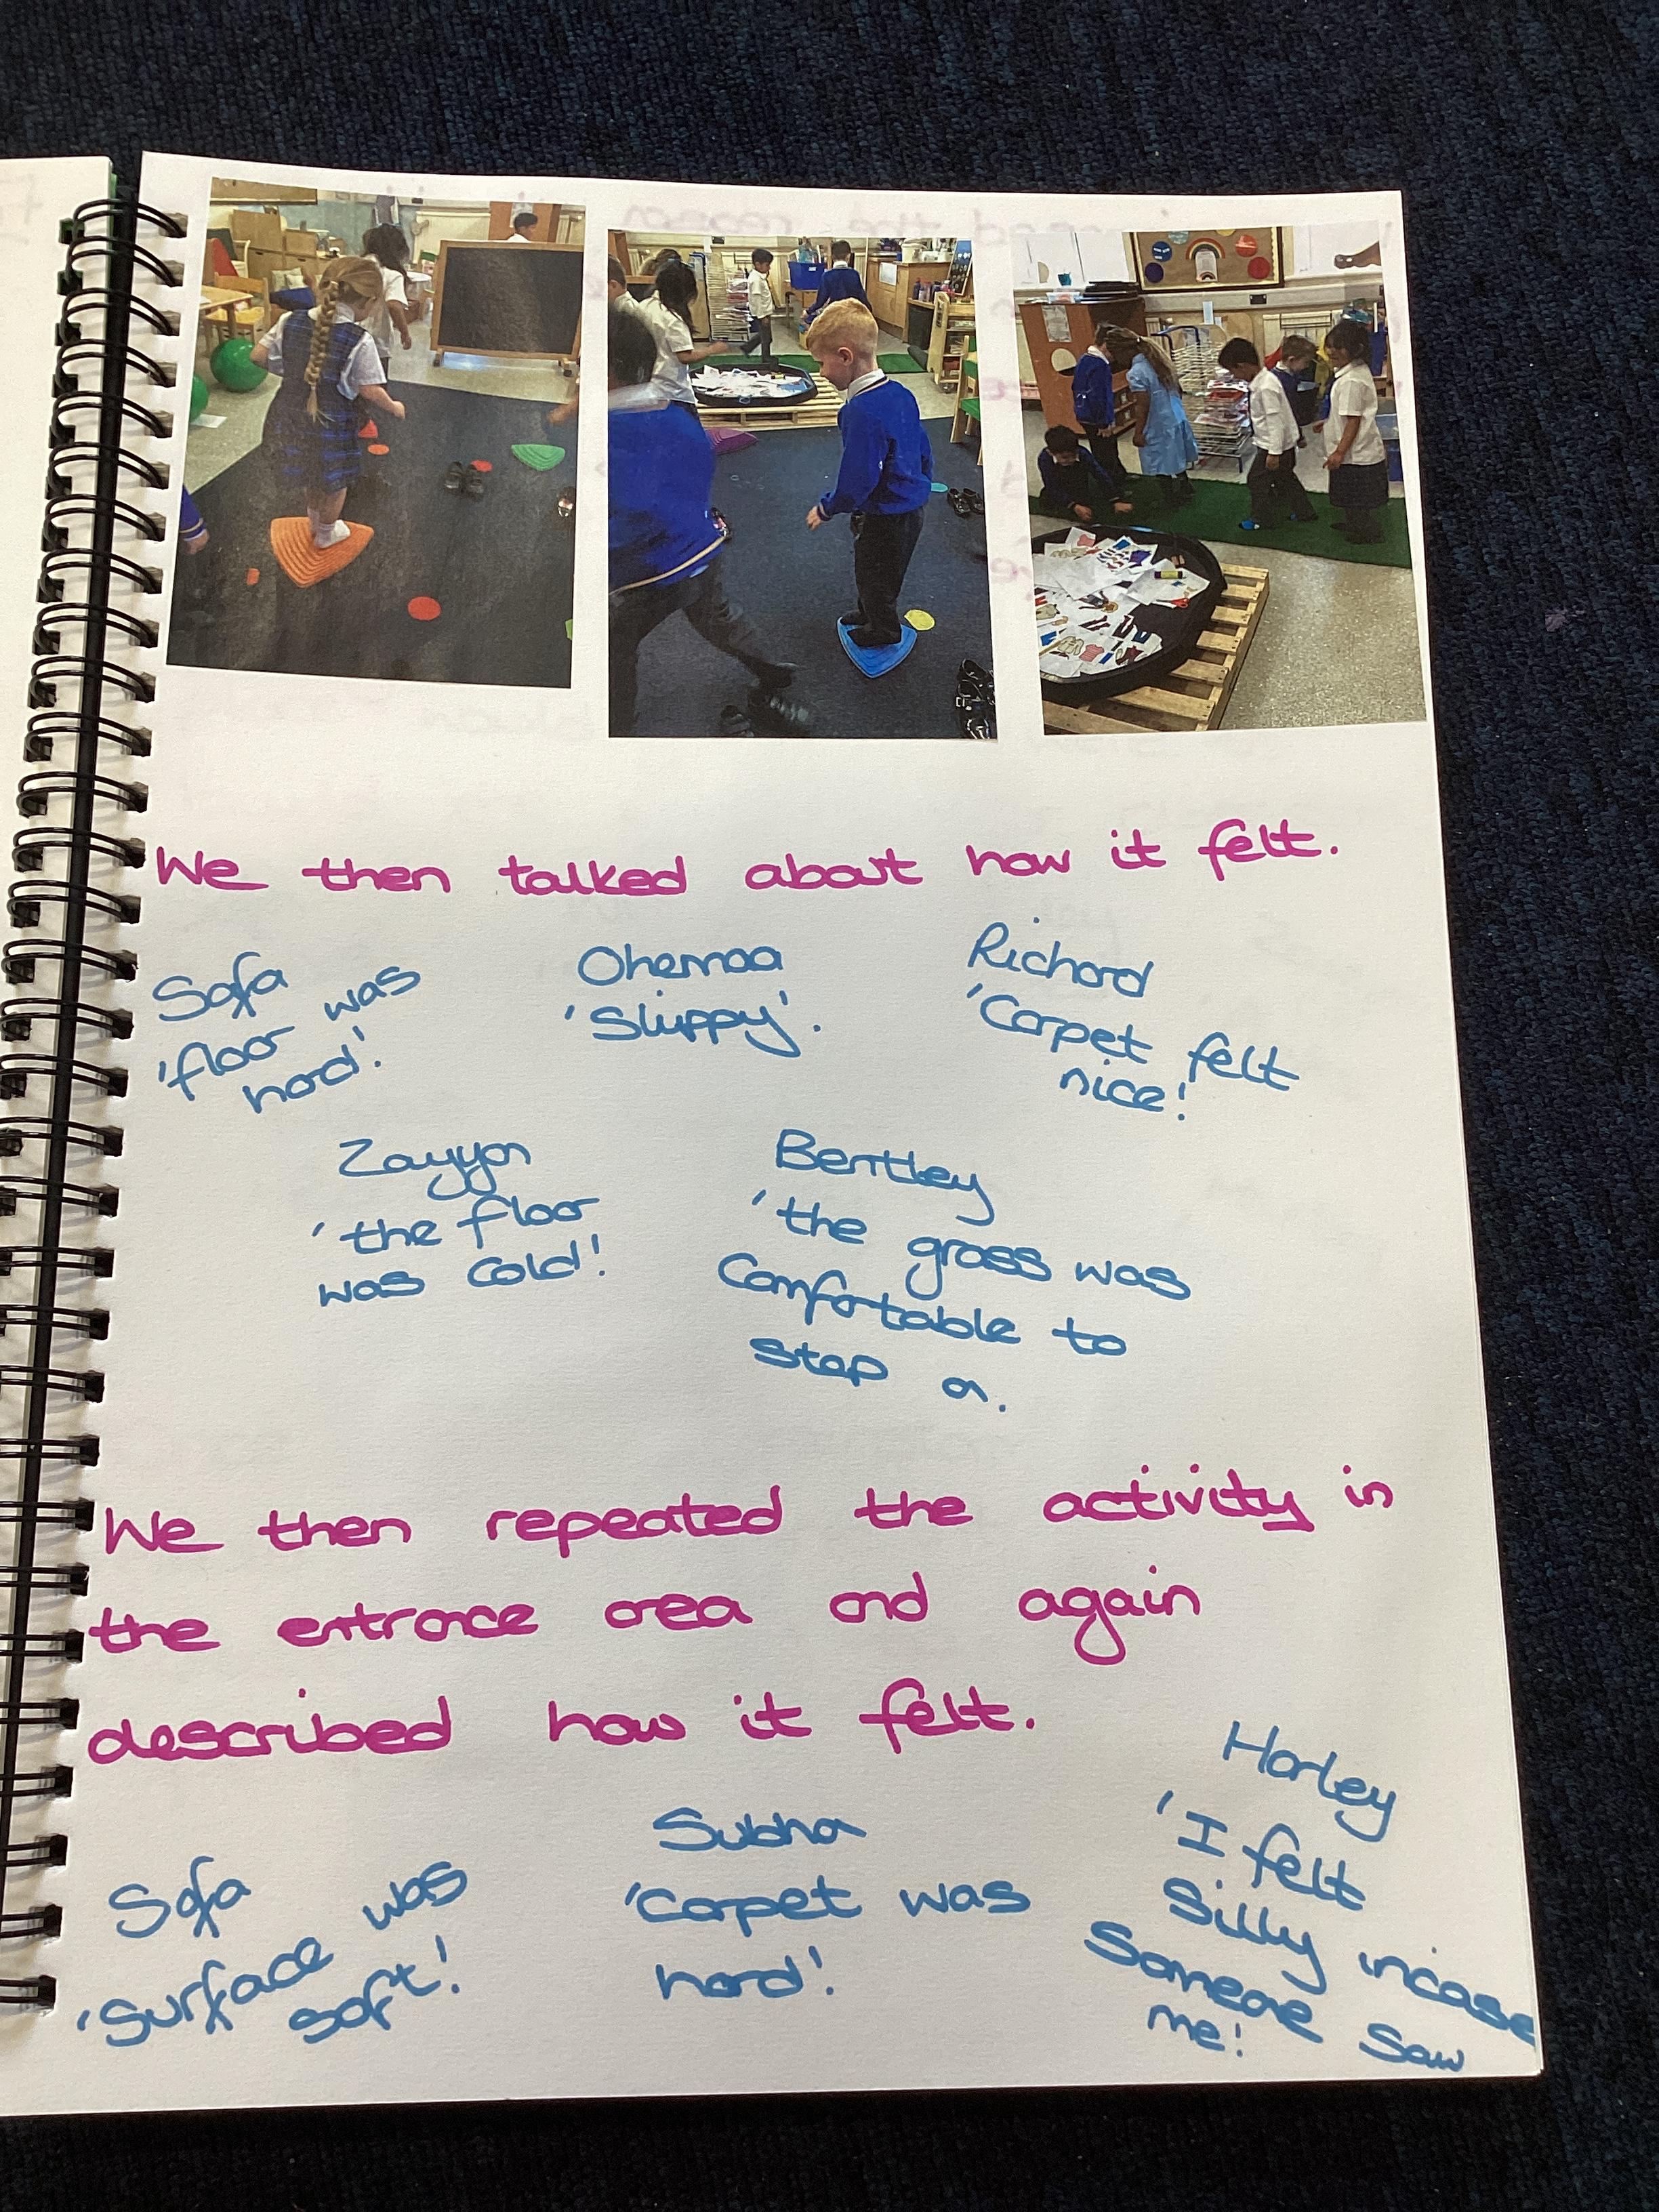 We then talked about how it felt.
Sofa
'floor was
hard'.
Ohemaa
'Slippy'.
Richard
'Carpet felt
nice!
Zayyan
'the floor
was cold!
Bentley
'the grass was
Comfortable to
step on.
We then repeated the activity in
the entrance area and again
described how it felt.
Sofa
'surface was
soft!
Subha
'Carpet was
hard'.
Harley
'I felt
Silly incase
Someone saw
me!